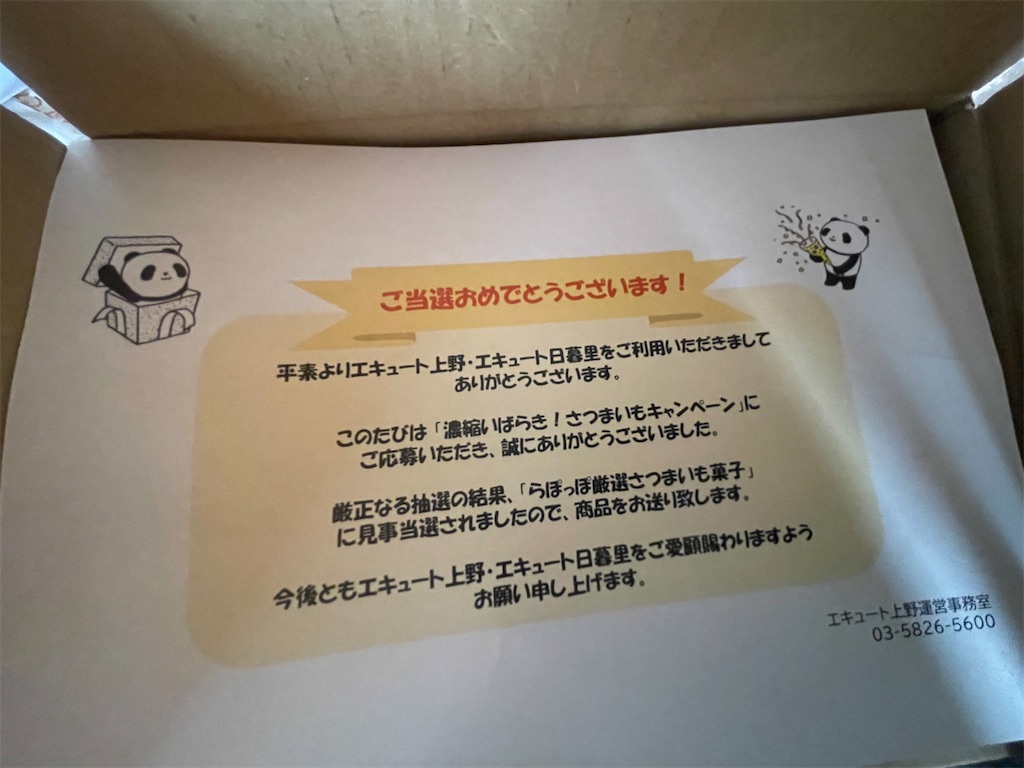 ご当選おめでとうございます！
平素よりエキュート上野・エキュート日暮里をご利用いただきまして
ありがとうございます。
このたびは「濃縮いばらき！さつまいもキャンペーン」に
ご応募いただき、誠にありがとうございました。
厳正なる抽選の結果、「らぽっぽ厳選さつまいも菓子」
に見事当選されましたので、商品をお送り致します。
今後ともエキュート上野・エキュート日暮里をご愛顧賜わりますよう
お願い申し上げます。
エキュート上野運営事務室
03-5826-5600